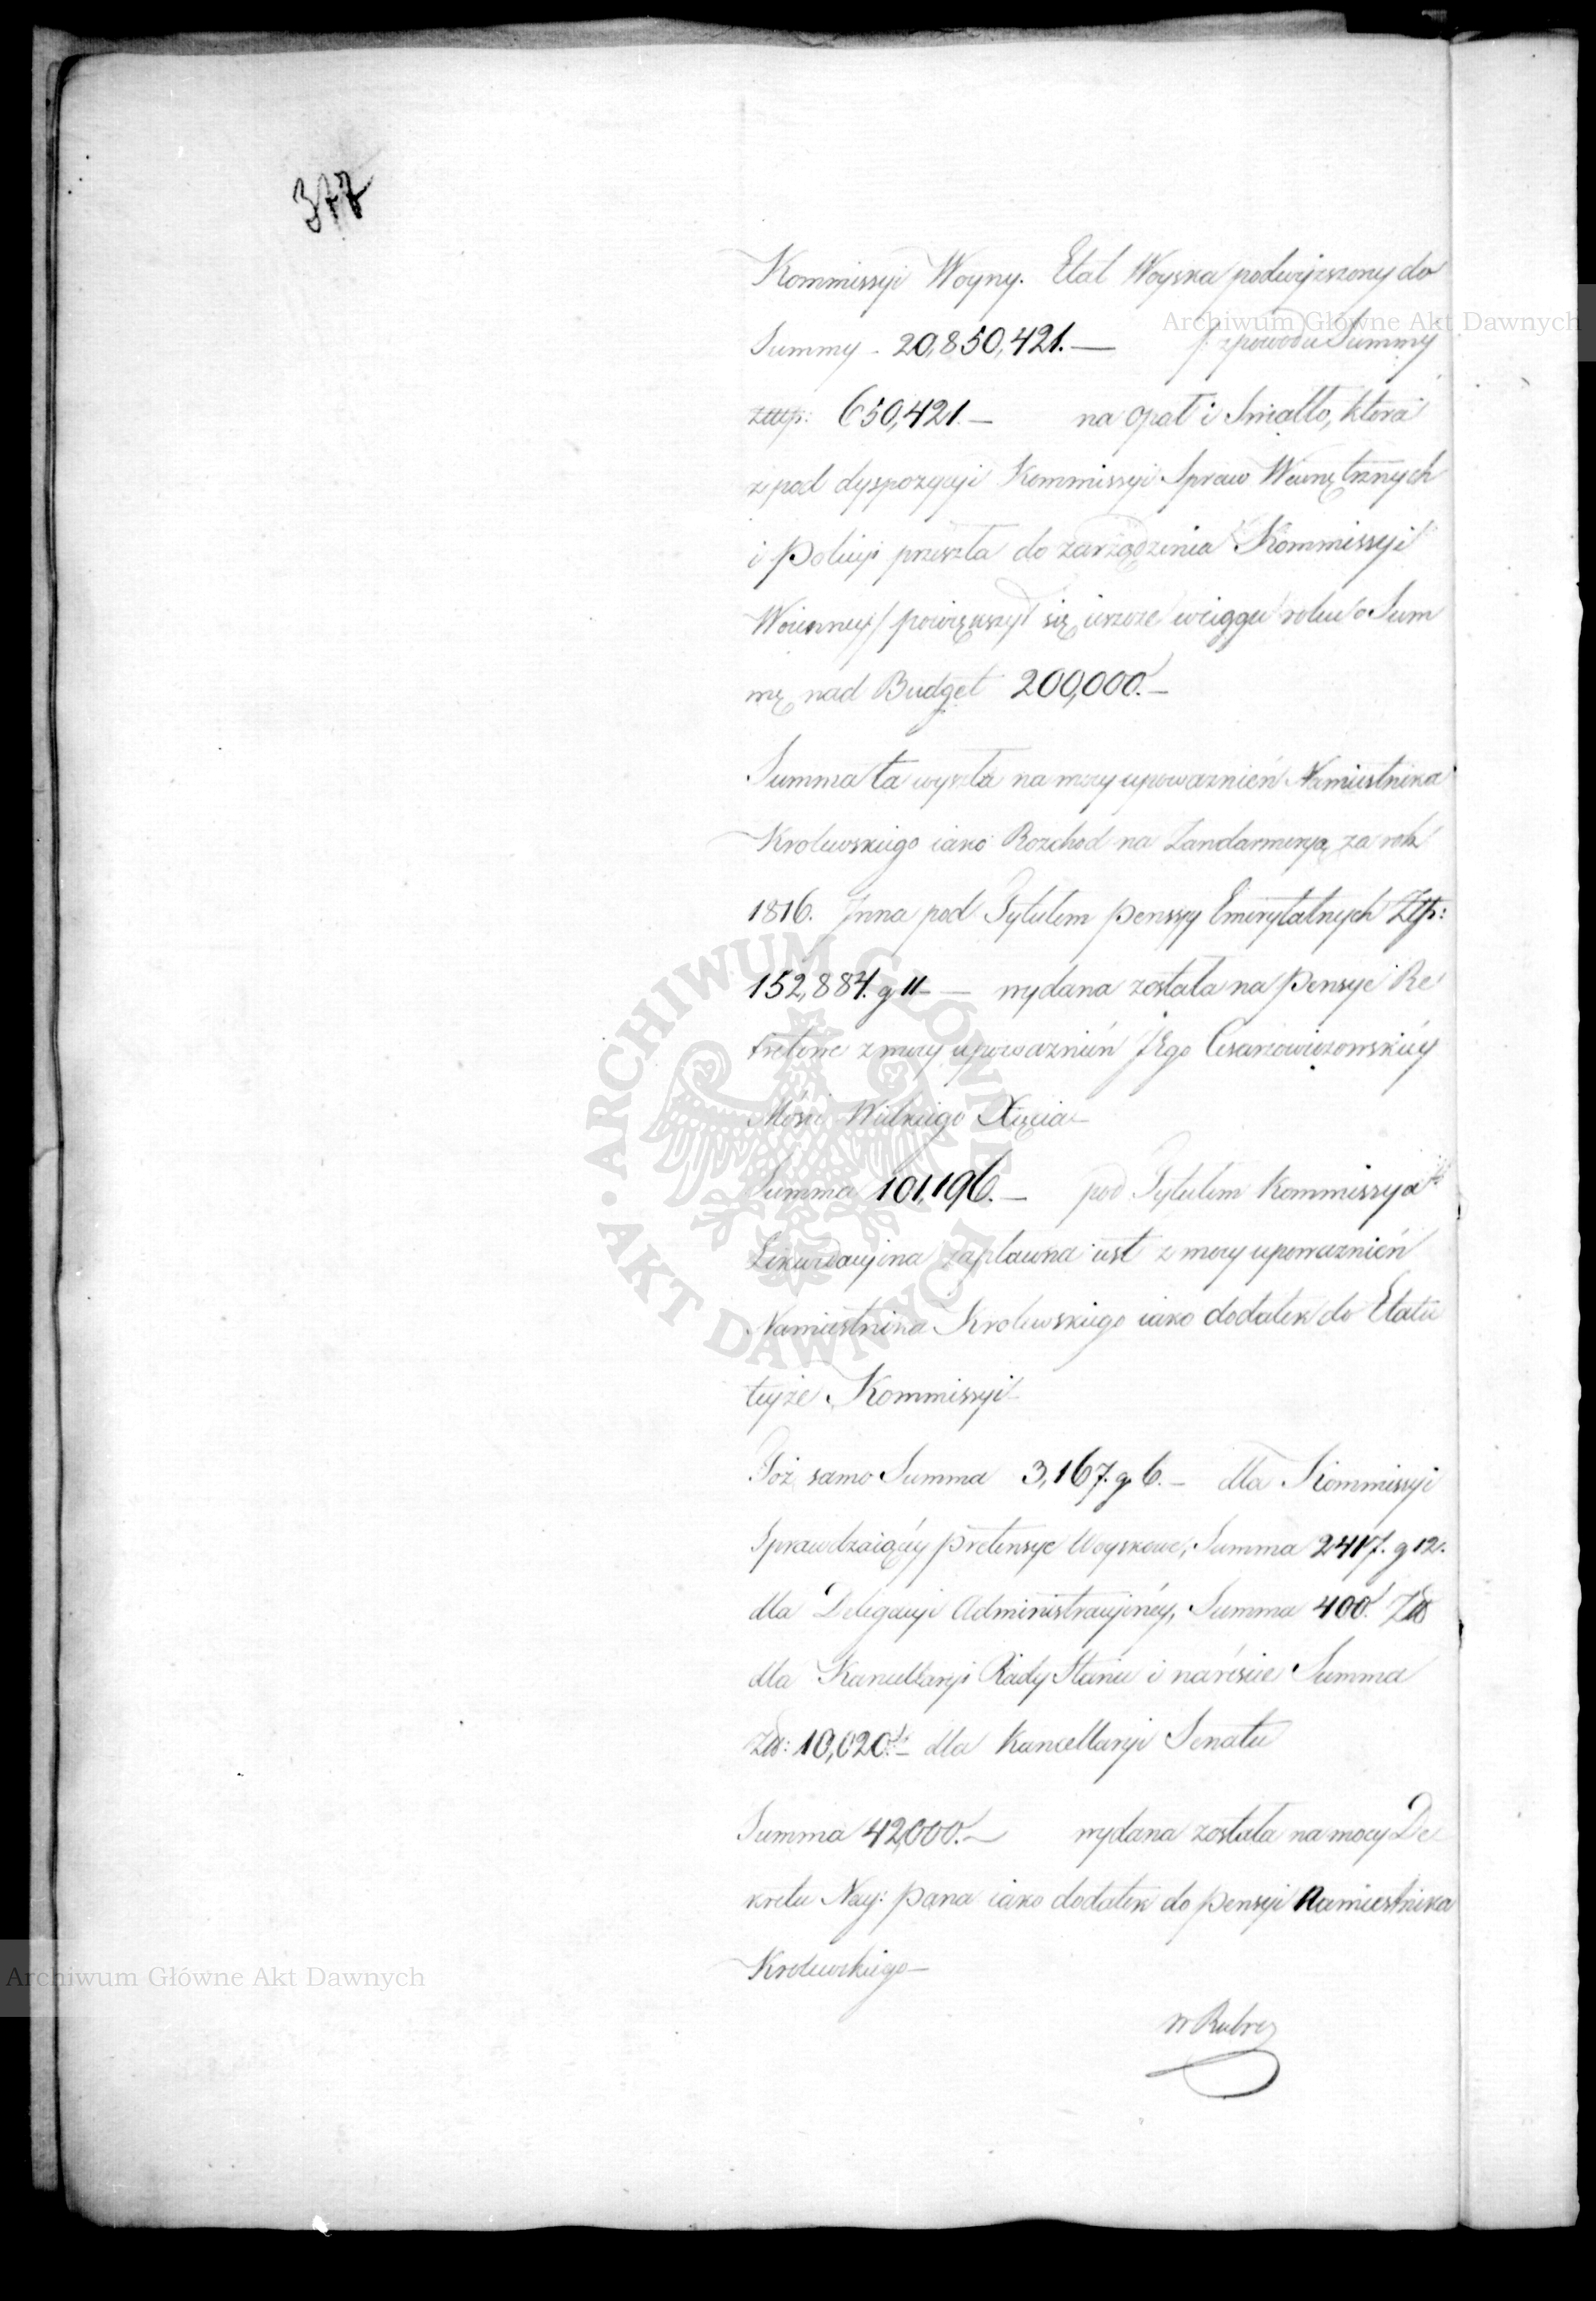 377
Kommissyi Woyny. Etat Woyska podwyższony do
Summy - 20,850,421.— /: z powodu Summy
złłp: 650,421.— na opał i Swiatło, ktora
z pod dyspozycyi Kommissyi Spraw Wewnętrznych
i Policyi przeszła do zarządzenia Kommissyi
Woienney:/ powiększył się ieszcze w ciągu roku o Sum
mę nad Budget 200,000.—
Summa ta wyszła na mocy upoważnień Namiestnika
Krolewskiego iako Rozchod na Żandarmeryą za rok
1816. Inna pod Tytułem Penssyy Emerytalnych Złp:
152,884. g 11.— wydana została na Pensye Re
tretowe z mocy upoważnień JEgo Cesarzowiczowskiéy
Mości Wielkiego Xięcia—
Summa 101,196.— pod Tytułem Kommissya
Likwidacyina zapłacona iest z mocy upoważnień
Namiestnika Krolewskiego iako dodatek do Etatu
teyże Kommissyi—
Toż samo Summa 3,167. g. 6.— dla Kommissyi
Sprawdzaiącéy Pretensye Woyskowe, Summa 2417. g 12.
dla Delegacyi Administracyinéy, Summa 400. Zł
dla Kancellaryi Rady Stanu i nareście Summa
Zł: 10,020.— dla Kancellaryi Senatu
Summa 42,000.— wydana została na mocy De
kretu Nay: Pana iako dodatek do Pensyi Namiestnika
Krolewskiego—
Archiwum Główne Akt Dawnych
ARCHIWUM GŁÓWNE • AKT DAWNYCH
Archiwum Główne Akt Dawnych